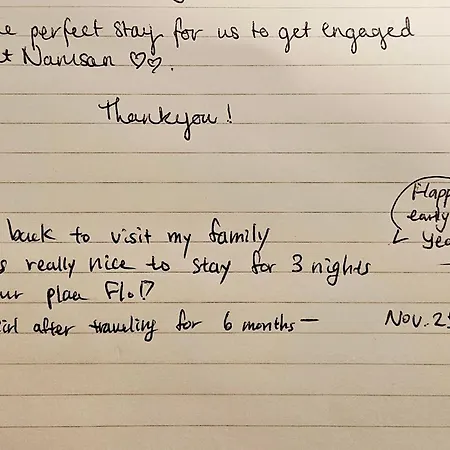 perfect stay for us to get engaged
Namsan ♡♡.
Thankyou!
back to visit my family
really nice to stay for 3 nights
Flo!?
after traveling for 6 months —
Happ
early
Yea
Nov. 25